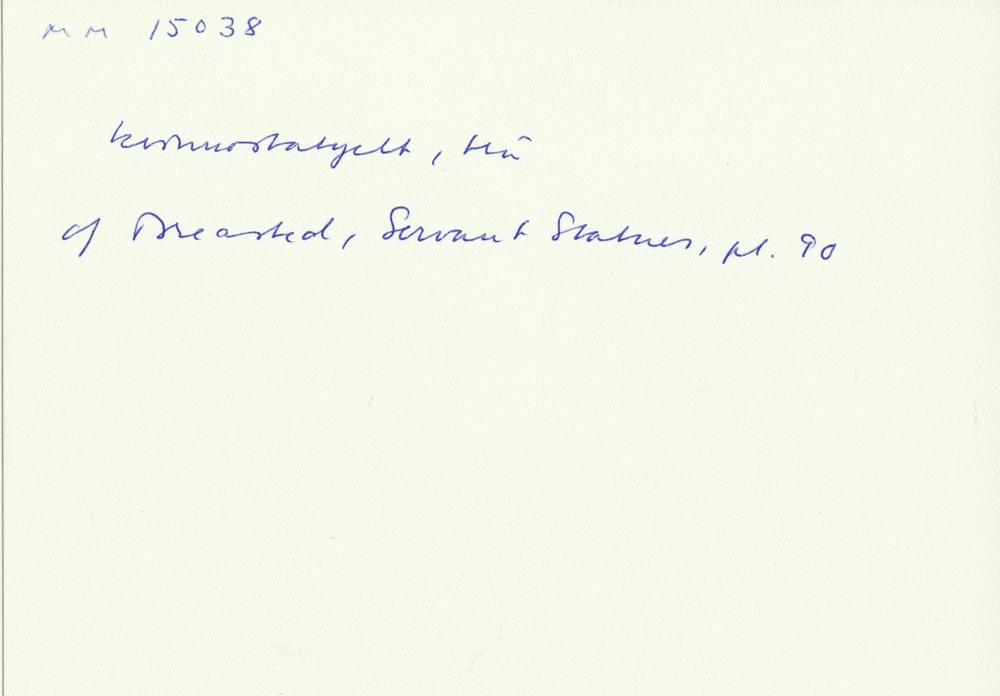 MM 15038
kvinnostatyett, trä
cf Breasted, Servant Statues, pl. 90